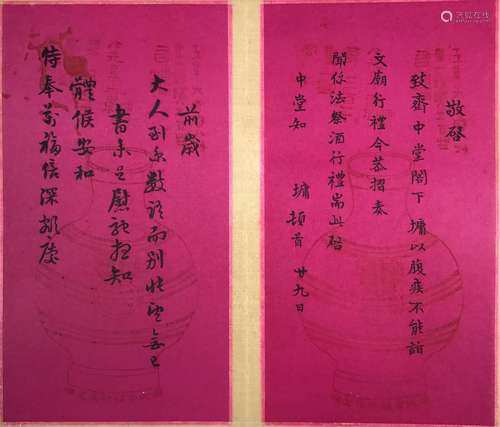 敬啓
致齊中堂閣下 墉以腹疾不能詣
文廟行禮今恭摺奏
聞 法祭酒行禮耑此啓
中堂知 墉頓首 廿九日
前歲
大人到京數語而別悵望無已
書來足慰馳想知
體候安和
福倍深